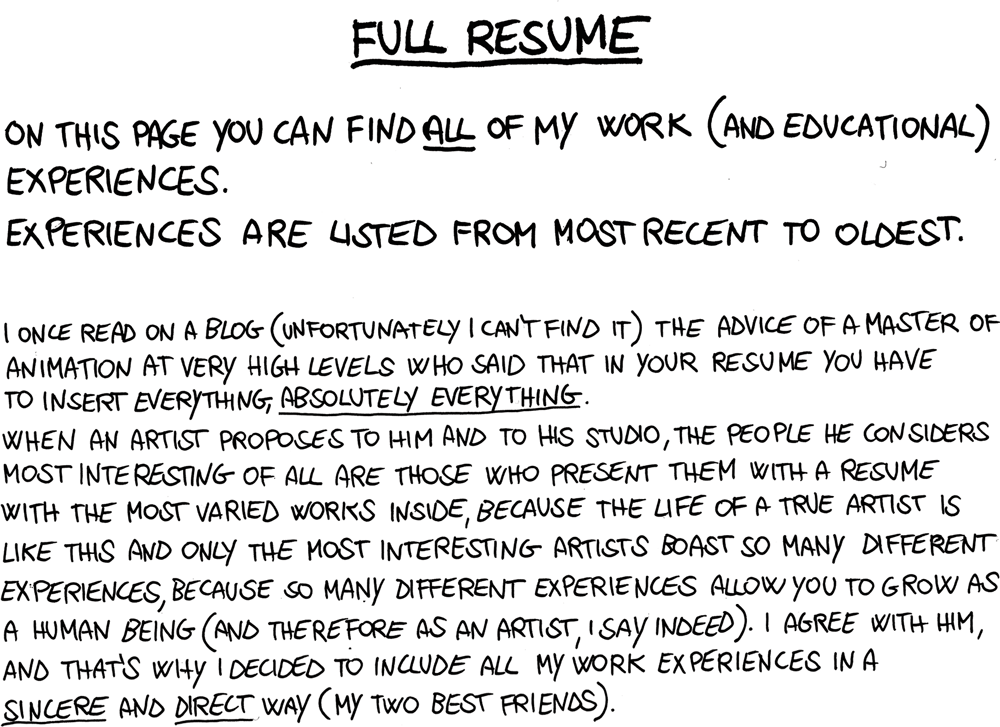 FULL RESUME
ON THIS PAGE YOU CAN FIND ALL OF MY WORK (AND EDUCATIONAL)
EXPERIENCES.
EXPERIENCES ARE LISTED FROM MOST RECENT TO OLDEST.
I ONCE READ ON A BLOG (UNFORTUNATELY I CAN'T FIND IT) THE ADVICE OF A MASTER OF
ANIMATION AT VERY HIGH LEVELS WHO SAID THAT IN YOUR RESUME YOU HAVE
TO INSERT EVERYTHING, ABSOLUTELY EVERYTHING.
WHEN AN ARTIST PROPOSES TO HIM AND TO HIS STUDIO, THE PEOPLE HE CONSIDERS
MOST INTERESTING OF ALL ARE THOSE WHO PRESENT THEM WITH A RESUME
WITH THE MOST VARIED WORKS INSIDE, BECAUSE THE LIFE OF A TRUE ARTIST IS
LIKE THIS AND ONLY THE MOST INTERESTING ARTISTS BOAST SO MANY DIFFERENT
EXPERIENCES, BECAUSE SO MANY DIFFERENT EXPERIENCES ALLOW YOU TO GROW AS
A HUMAN BEING (AND THEREFORE AS AN ARTIST, I SAY INDEED). I AGREE WITH HIM,
AND THAT'S WHY I DECIDED TO INCLUDE ALL MY WORK EXPERIENCES IN A
SINCERE AND DIRECT WAY (MY TWO BEST FRIENDS).